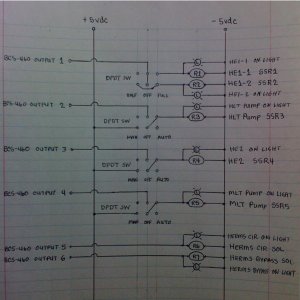 +5vdc
-5vdc
BCS-460 OUTPUT 1
HE1-1 ON LIGHT
R1
HE1-1 SSR1
DPDT SW
R2
HE1-2 SSR2
OFF FULL
HE1-2 ON LIGHT
BCS-460 OUTPUT 2
HLT PUMP ON LIGHT
DPDT SW
R3
HLT PUMP SSR3
MAN OFF AUTO
BCS-460 OUTPUT 3
HE2 ON LIGHT
DPDT SW
R4
HE2 SSR4
MAN OFF AUTO
BCS-460 OUTPUT 4
MLT PUMP ON LIGHT
DPDT SW
R5
MLT PUMP SSR5
MAN OFF AUTO
HERMS CIR ON LIGHT
BCS-460 OUTPUT 5
R6
HERMS CIR SOL
BCS-460 OUTPUT 6
R7
HERMS BYPASS SOL
HERMS BYPASS ON LIGHT